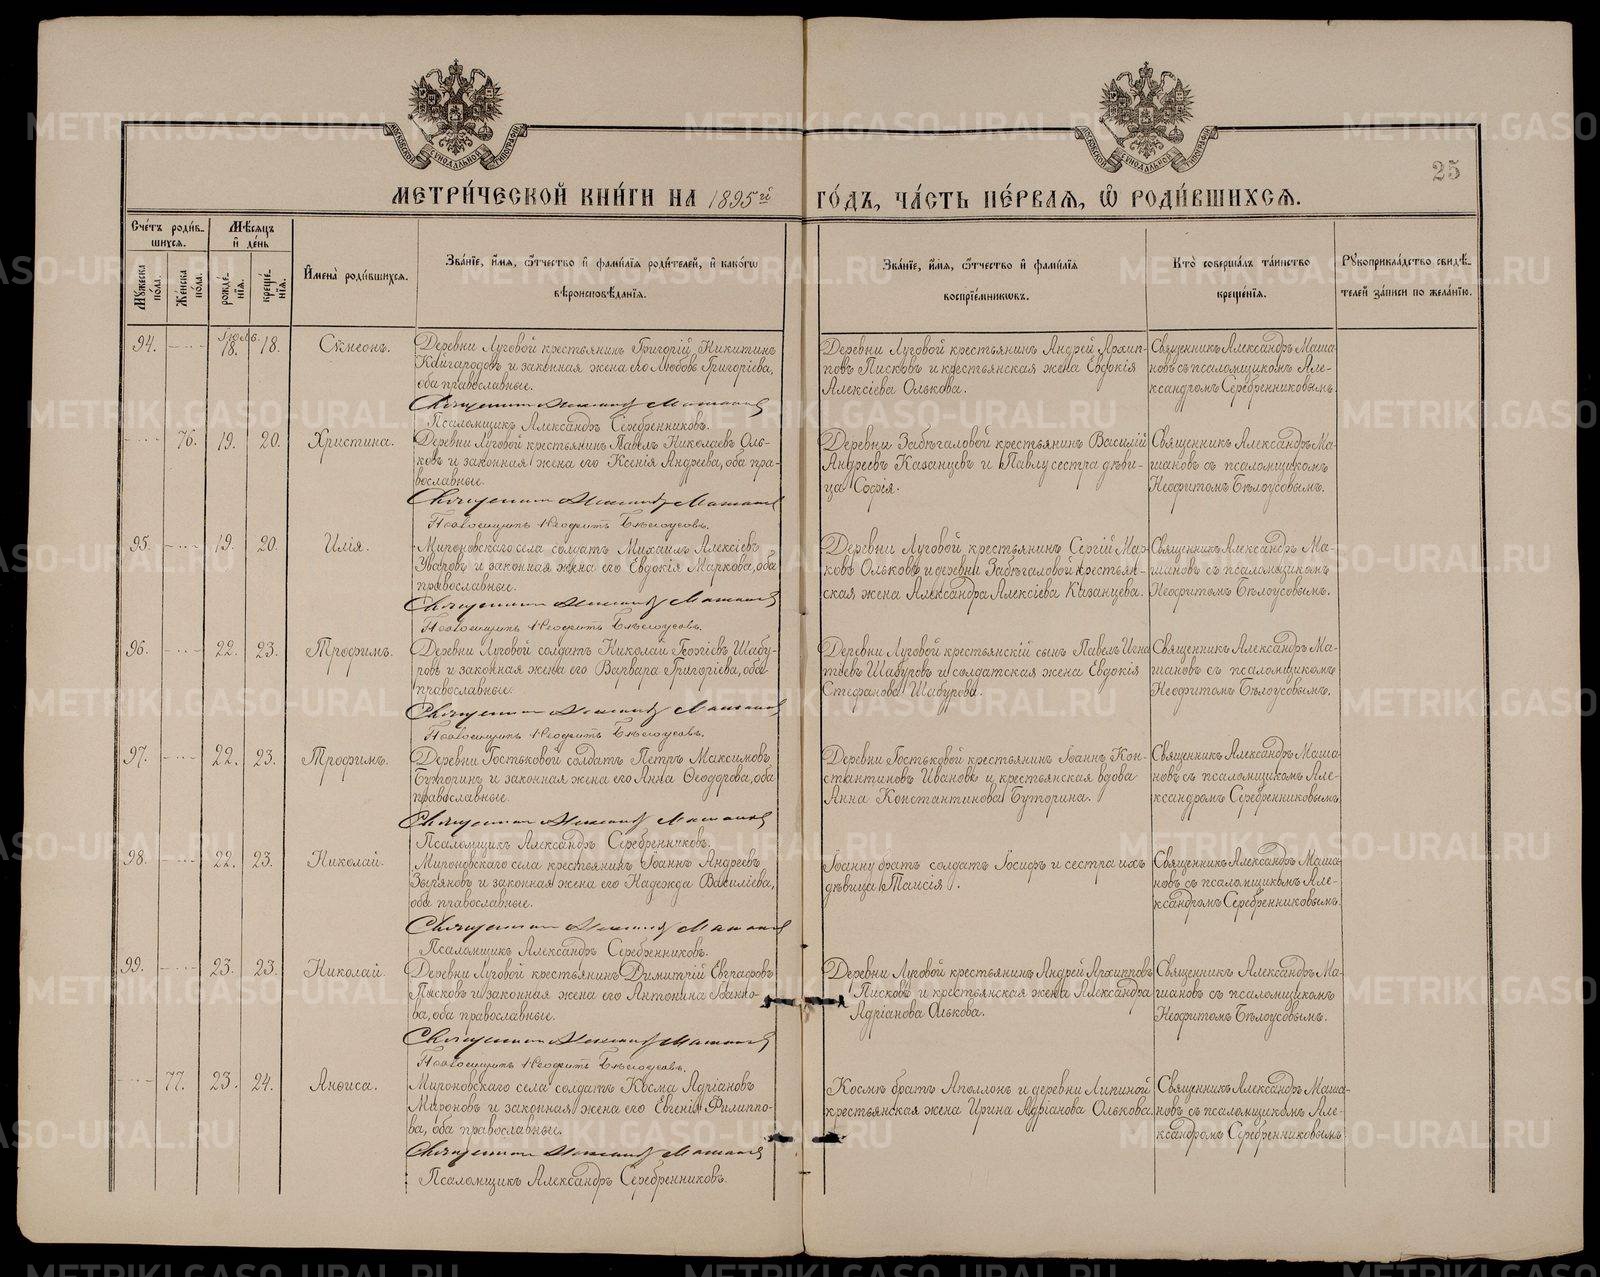 МОСКОВСКОЙ СѴНОДАЛЬНОЙ ТИПОГРАФІИ
МОСКОВСКОЙ СѴНОДАЛЬНОЙ ТИПОГРАФІИ
25
МЕТРИ́ЧЕСКОЙ КНИ́ГИ НА 1895й ГО́ДЪ, ЧА́СТЬ ПЕ́РВАЯ, Ѽ РОДИ́ВШИХСЯ.
Сче́тъ роди́вшихся.
Мужеска по́ла.
Же́нска по́ла.
Мѣ́сяцъ и҆ де́нь
рожде́нїя.
креще́нїя.
И҆мена̀ роди́вшихся.
Зва́нїе, и҆́мя, ѻ҆́тчество и҆ фами́лїя роди́телей, и҆ како́гѡ вѣроисповѣ́данїя.
Зва́нїе, и҆́мя, ѻ҆́тчество и҆ фами́лїя воспрїе́мникѡвъ.
Кто̀ соверша́лъ та́инство креще́нїя.
Рꙋкоприкла́дство свидѣ́телей за́писи по жела́нїю.
Іюль.
94. 18. 18. Сѵмеонъ.
Деревни Луговой крестьянинъ Григорій Никитинъ
Кайгородовъ и законная жена его Любовь Григоріева,
оба православные.
Священникъ Александръ Машановъ
Псаломщикъ Александръ Серебренниковъ.
Деревни Луговой крестьянинъ Андрей Архип-
повъ Писковъ и крестьянская жена Евдокія
Алексіева Олькова.
Священникъ Александръ Маша-
новъ съ псаломщикомъ Але-
ксандромъ Серебренниковымъ.
76. 19. 20. Христина.
Деревни Луговой крестьянинъ Павелъ Николаевъ Оль-
ковъ и законная жена его Ксенія Андреева, оба пра-
вославные.
Священникъ Александръ Машановъ
Псаломщикъ Неофитъ Бѣлоусовъ.
Деревни Забѣгаловой крестьянинъ Василій
Андреевъ Казанцевъ и Павлу сестра дѣви-
ца Софія.
Священникъ Александръ Ма-
шановъ съ псаломщикомъ
Неофитомъ Бѣлоусовымъ.
95. 19. 20. Илія.
Мироновскаго села солдатъ Михаилъ Алексіевъ
Уваровъ и законная жена его Евдокія Маркова, оба
православные.
Священникъ Александръ Машановъ
Псаломщикъ Неофитъ Бѣлоусовъ.
Деревни Луговой крестьянинъ Сергій Мар-
ковъ Ольковъ и деревни Забѣгаловой крестьян-
ская жена Александра Алексіева Казанцева.
Священникъ Александръ Ма-
шановъ съ псаломщикомъ
Неофитомъ Бѣлоусовымъ.
96. 22. 23. Трофимъ.
Деревни Луговой солдатъ Николай Георгіевъ Шабу-
ровъ и законная жена его Варвара Григоріева, оба
православные.
Священникъ Александръ Машановъ
Псаломщикъ Неофитъ Бѣлоусовъ.
Деревни Луговой крестьянскій сынъ Павелъ Игна
тіевъ Шабуровъ и солдатская жена Евдокія
Стефанова Шабурова.
Священникъ Александръ Ма-
шановъ съ псаломщикомъ
Неофитомъ Бѣлоусовымъ.
97. 22. 23. Трофимъ.
Деревни Гостьковой солдатъ Петръ Максимовъ
Буторинъ и законная жена его Анна Ѳеодорова, оба
православные.
Священникъ Александръ Машановъ
Псаломщикъ Александръ Серебренниковъ.
Деревни Гостьковой крестьянинъ Іоаннъ Кон-
стантиновъ Ивановъ и крестьянская вдова
Анна Константинова Буторина.
Священникъ Александръ Маша-
новъ съ псаломщикомъ Але-
ксандромъ Серебренниковымъ.
98. 22. 23. Николай.
Мироновскаго села крестьянинъ Іоаннъ Андреевъ
Зыряновъ и законная жена его Надежда Василіева,
оба православные.
Священникъ Александръ Машановъ
Псаломщикъ Александръ Серебренниковъ.
Іоанну братъ солдатъ Іосифъ и сестра ихъ
дѣвица Таисія.
Священникъ Александръ Маша-
новъ съ псаломщикомъ Але-
ксандромъ Серебренниковымъ.
99. 23. 23. Николай.
Деревни Луговой крестьянинъ Димитрій Евграфовъ
Писковъ и законная жена его Антонина Іоанно-
ва, оба православные.
Священникъ Александръ Машановъ
Псаломщикъ Неофитъ Бѣлоусовъ.
Деревни Луговой крестьянинъ Андрей Архипповъ
Писковъ и крестьянская жена Александра
Адріанова Олькова.
Священникъ Александръ Ма-
шановъ съ псаломщикомъ
Неофитомъ Бѣлоусовымъ.
77. 23. 24. Анѳиса.
Мироновскаго села солдатъ Косма Адріановъ
Мироновъ и законная жена его Евгенія Филиппо-
ва, оба православные.
Священникъ Александръ Машановъ
Псаломщикъ Александръ Серебренниковъ.
Космѣ братъ Аполлонъ и деревни Липиной
крестьянская жена Ирина Адріанова Олькова.
Священникъ Александръ Маша-
новъ съ псаломщикомъ Але-
ксандромъ Серебренниковымъ.
METRIKI.GASO-URAL.RU